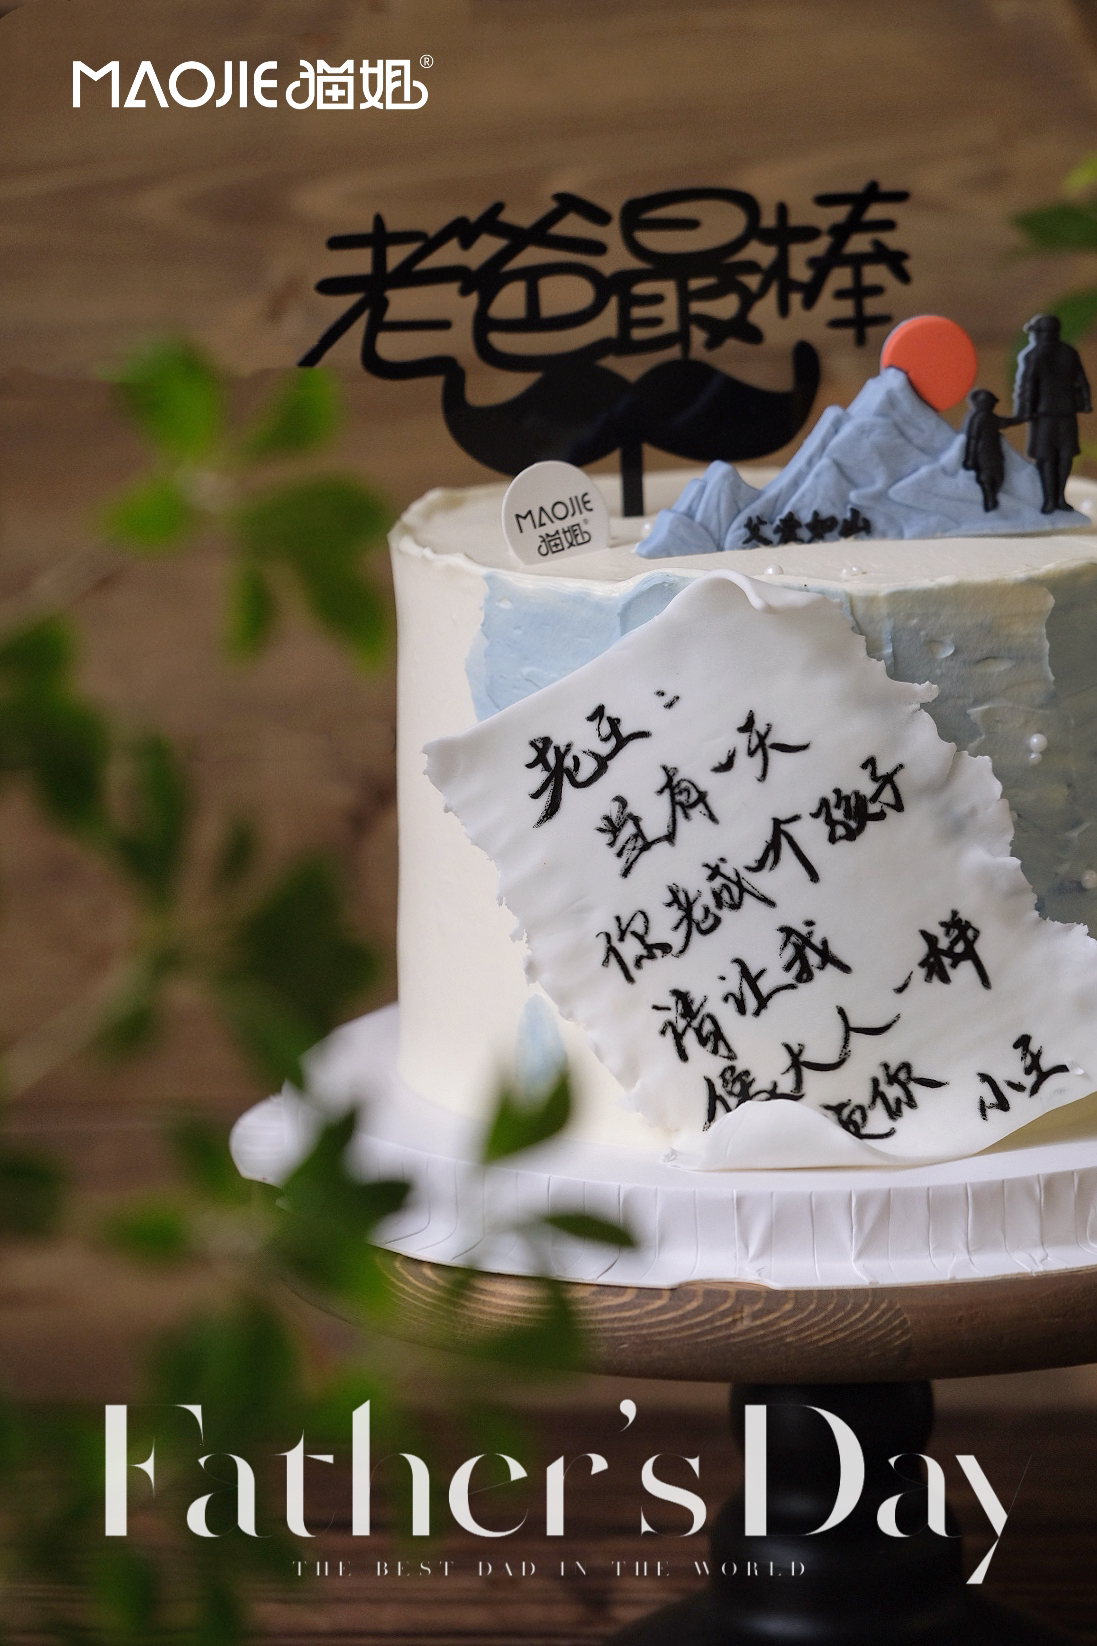 MAOJIE猫姐®
老爸最棒
MAOJIE
猫姐®
父爱如山
老王：
当有一天
你老成一个孩子
请让我
像大人一样
宠你
小王
Father's Day
THE BEST DAD IN THE WORLD